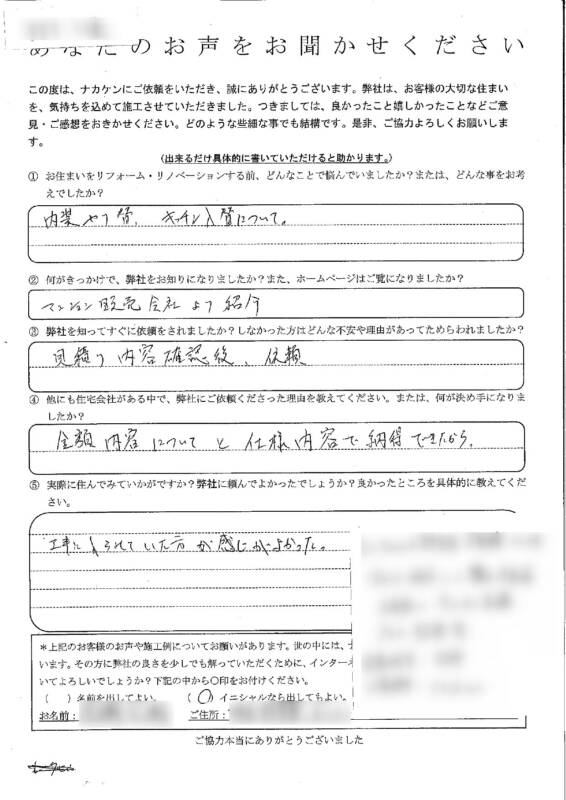 あなたのお声をお聞かせください
この度は、ナカケンにご依頼をいただき、誠にありがとうございます。弊社は、お客様の大切な住まい
を、気持ちを込めて施工させていただきました。つきましては、良かったこと嬉しかったことなどご意
見・ご感想をおきかせください。どのような些細な事でも結構です。是非、ご協力よろしくお願いしま
す。
（出来るだけ具体的に書いていただけると助かります。）
① お住まいをリフォーム・リノベーションする前、どんなことで悩んでいましたか？または、どんな事をお考
えでしたか？
内装や床暖、キッチン入替について。
② 何がきっかけで、弊社をお知りになりましたか？また、ホームページはご覧になりましたか？
マンション販売会社より紹介
③ 弊社を知ってすぐに依頼をされましたか？しなかった方はどんな不安や理由があってためらわれましたか？
見積り内容確認後、依頼
④ 他にも住宅会社がある中で、弊社にご依頼くださった理由を教えてください。または、何が決め手になりま
したか？
金額内容についてと仕様内容で納得できたから。
⑤ 実際に住んでみていかがですか？弊社に頼んでよかったでしょうか？良かったところを具体的に教えてくだ
さい。
工事に入られていた方が感じがよかった。
＊上記のお客様のお声や施工例についてお願いがあります。世の中には、
います。その方に弊社の良さを少しでも解っていただくために、インターネ
いてよろしいでしょうか？下記の中から○印をお付けください。
（　）名前を出してよい。　（○）イニシャルなら出してもよい。
お名前：　ご住所：
ご協力本当にありがとうございました